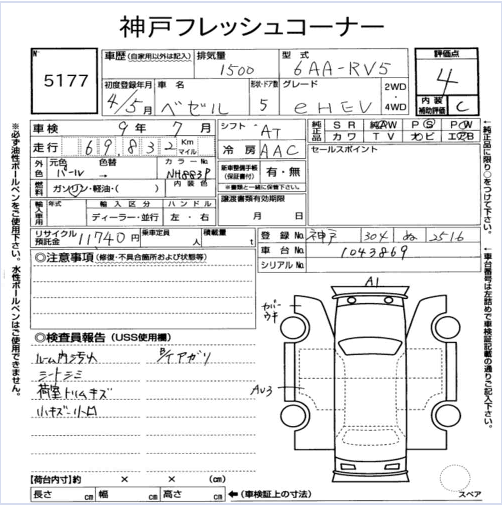 神戸フレッシュコーナー
No 5177
車歴 (自家用以外は記入)
排気量 1500
型式 6AA-RV5
評価点 4
初度登録年月 4/5月
車名 ベゼル
形状・ドア数 5
グレード e HEV
2WD・4WD
内装補助評価 C
車検 9年 7月
シフト AT
純正品 SR AW PS PW
カワ TV ナビ エアB
走行 69,832 Km マイル
冷房 AAC
セールスポイント
外色 元色 パール 色替 カラーNo. NH883P
内装色
燃料 ガソリン・軽油・( )
新車整備手帳(保証書付) 有・無
※書類と一緒に保管下さい。
輸入車用 年式 輸入区分 ディーラー・並行 ハンドル 左・右
譲渡書類有効期限 月 日
リサイクル預託金 11740 円
乗車定員 人
積載量 t
登録No. 神戸 304 ぬ 2516
車台No. 1043869
シリアルNo.
◎注意事項 (修復・不具合箇所および状態等)
◎検査員報告 (USS使用欄)
ルーム内汚れ
シートシミ
荷室トリムキズ
小キズ・小凹
A1
カバーウキ
AU3
【荷台内寸】約 × × (cm)
長さ cm 幅 cm 高さ cm
←(車検証上の寸法)
スペア
※必ず油性ボールペンをご使用下さい。水性ボールペンはご使用できません。
←純正品に限り○をつけて下さい。
←車台番号は左詰めで車検証記載の通りご記入下さい。